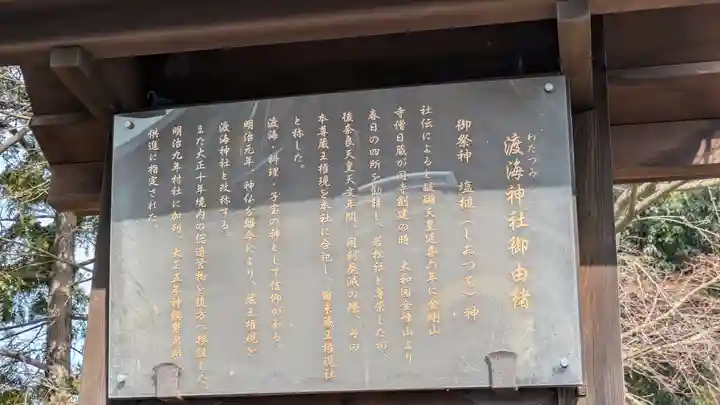 わたつみ
渡海神社御由緒
御祭神 塩槌(しおつち)神
社伝によると醍醐天皇延喜六年に金剛山
寺僧日蔵が同寺創建の時、大和国金峰山より
春日の四所を勧請し、若松社と尊崇したが、
後奈良天皇天文年間、同刹廃滅の際、その
本尊蔵王権現を末社に合祀し、爾来蔵王権現社
と称した。
渡海・料理・子宝の神として信仰がある。
明治元年 神仏分離令により、蔵王権現を
渡海神社と改称する。
また大正十年境内の
明治九年村社に加列 大正五年神饌幣帛料
供進に指定された。